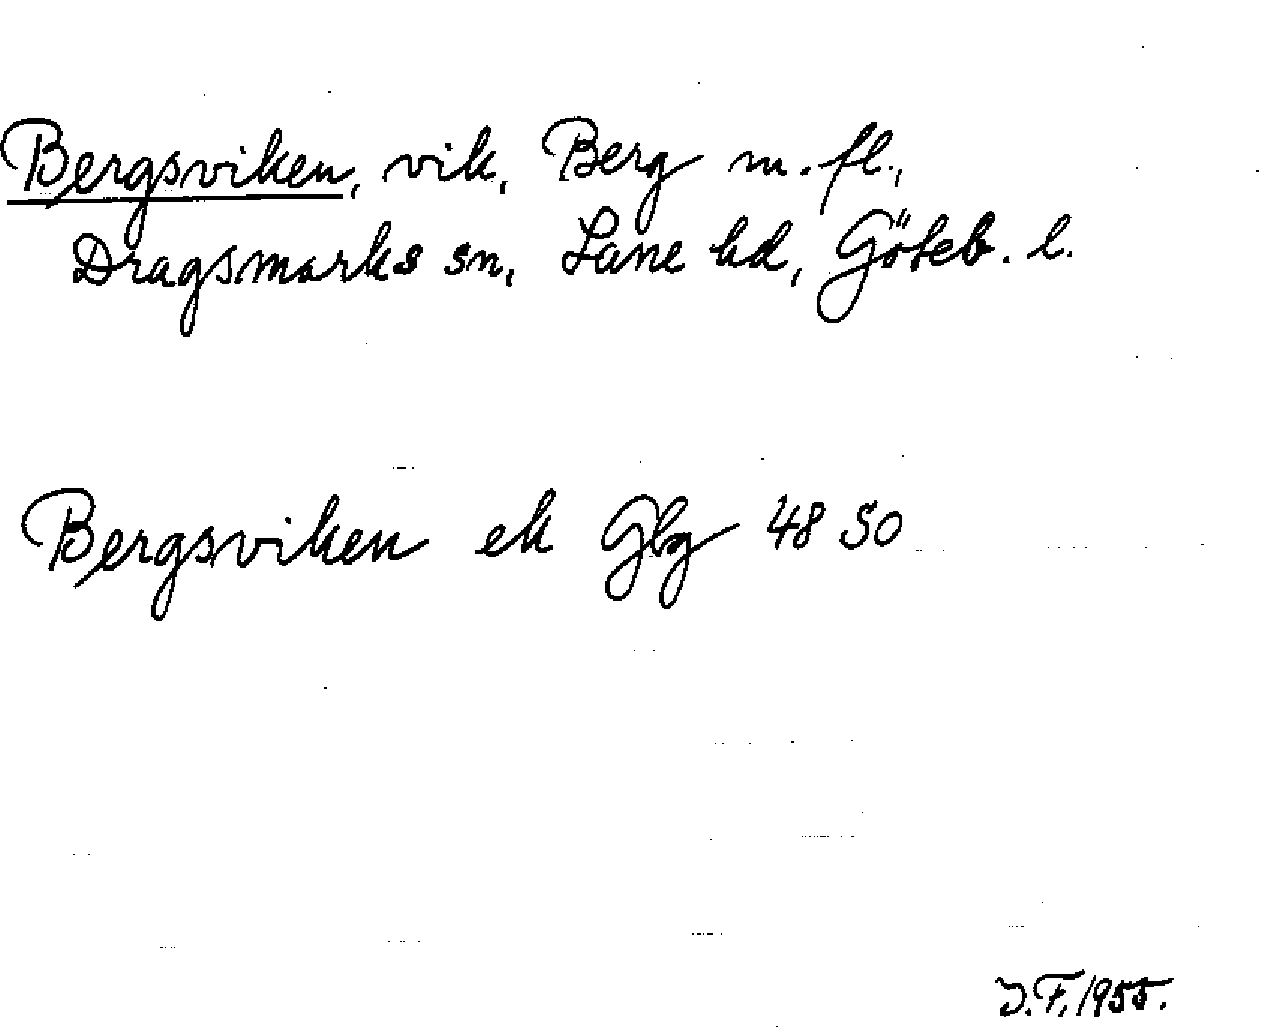 Bergsviken, vik, Berg m. fl.,
Dragsmarks sn, Lane hd, Göteb. l.
Bergsviken ek Gbg 48 SO
J.F. 1955.